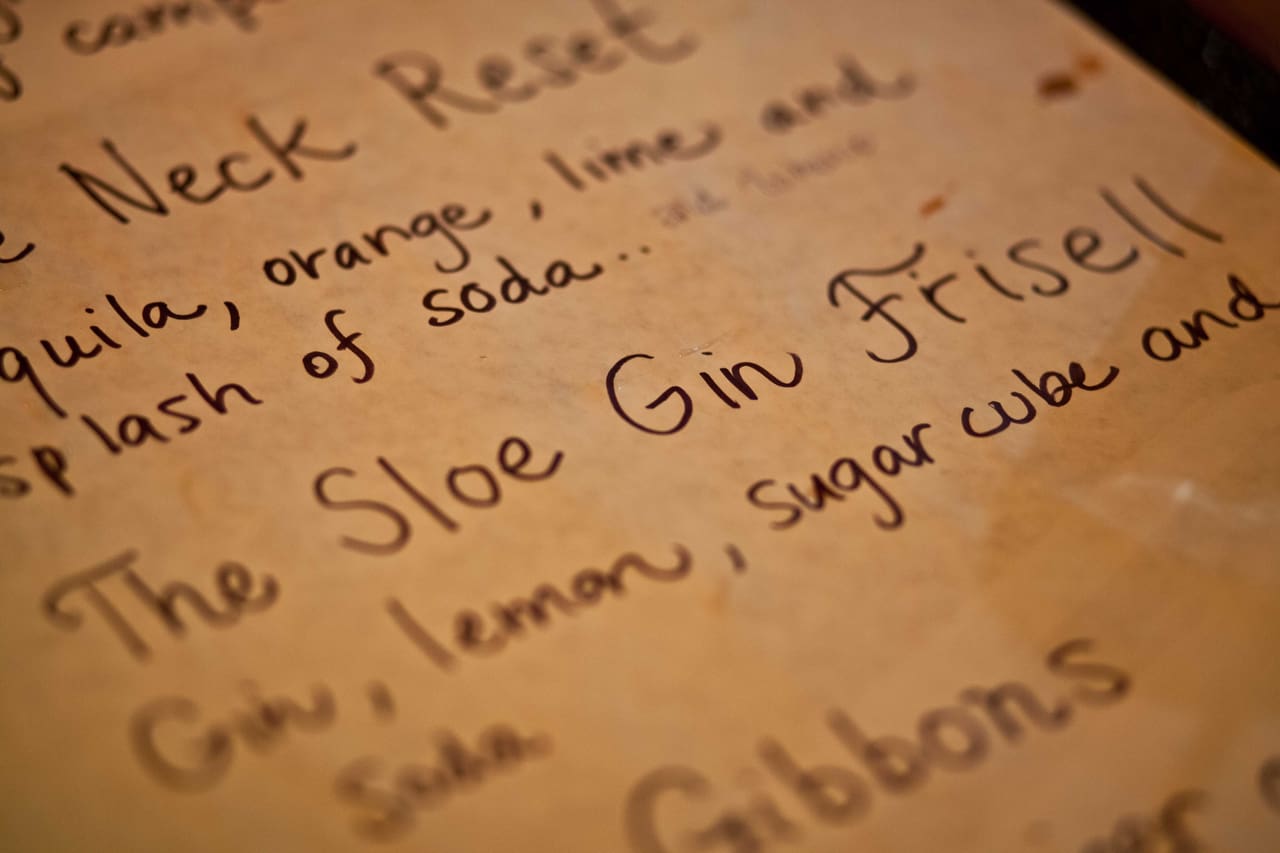 camp
e Neck Reset
quila, orange, lime and
splash of soda...
The Sloe Gin Frisell
Gin, lemon, sugar cube and
Soda
Gibbons